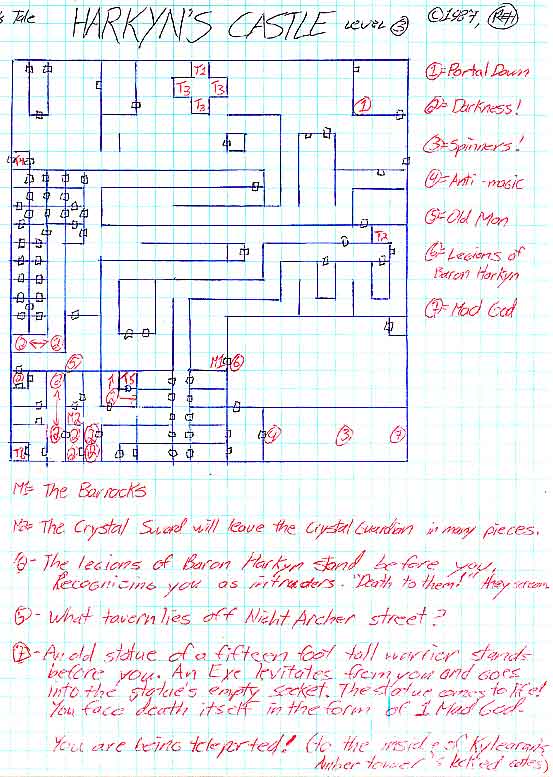 's Tale HARKYN'S CASTLE LEVEL 3 ©1987, REH
①=Portal Down
②=Darkness!
③=Spinners!
④=Anti-magic
⑤=Old Man
⑥=Legions of
Baron Harkyn
⑦=Mad God
T1
T3 T3
T3
1
T4
T2
2 ↔ 2
5
M1 6
2 6 ↑ T5
6
M2
2 2 2
T1 2 2
4 3 7
M1= The Barracks
M2= The Crystal Sword will leave the Crystal Guardian in many pieces.
⑥- The legions of Baron Harkyn stand before you,
Recognizing you as intruders. "Death to them!" they scream
⑤- What tavern lies off Night Archer street?
⑦- An old statue of a fifteen foot tall warrior stands
before you. An Eye levitates from you and goes
into the statue's empty socket. The statue comes to life!
You face death itself in the form of 1 Mad God.
You are being teleported! (to the inside of Kylearan's
Amber tower's locked gates)